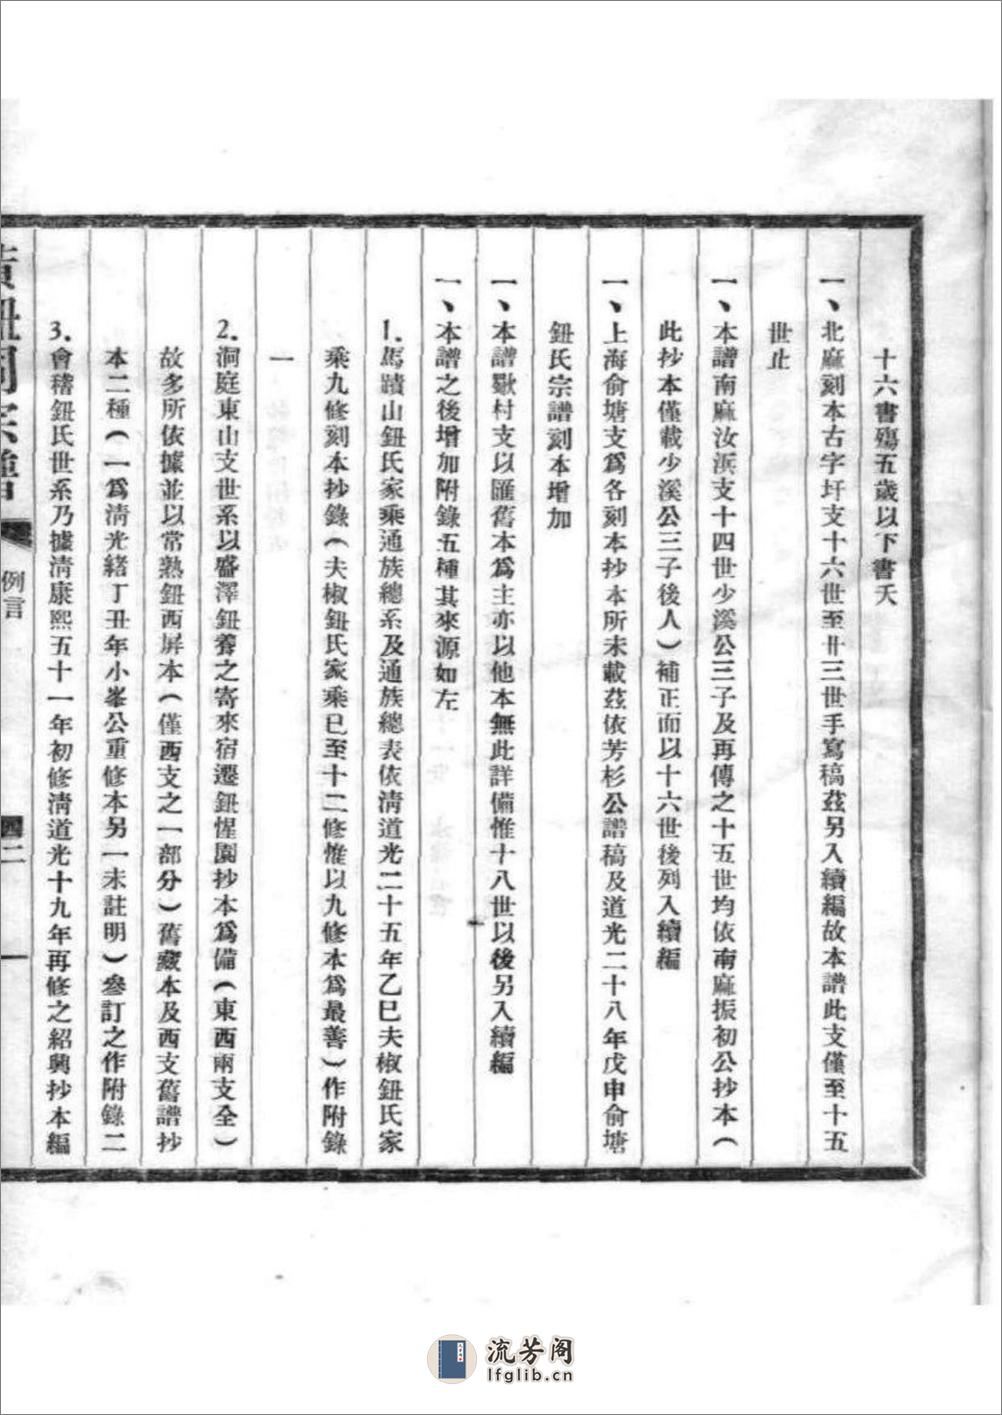 十六書殤五歲以下書夭
一、北麻刻本古字圩支十六世至卄三世手寫稿茲另入續編故本譜此支僅至十五
世止
一、本譜南麻汝浜支十四世少溪公三子及再傳之十五世均依南麻振初公抄本（
此抄本僅載少溪公三子後人）補正而以十六世後列入續編
一、上海俞塘支爲各刻本抄本所未載茲依芳杉公譜稿及道光二十八年戊申俞塘
鈕氏宗譜刻本增加
一、本譜歇村支以匯舊本爲主亦以他本無此詳備惟十八世以後另入續編
一、本譜之後增加附錄五種其來源如左
1.馬蹟山鈕氏家乘通族總系及通族總表依淸道光二十五年乙巳夫椒鈕氏家
乘九修刻本抄錄（夫椒鈕氏家乘已至十二修惟以九修本爲最善）作附錄
一
2.洞庭東山支世系以盛澤鈕養之寄來宿遷鈕惺園抄本爲備（東西兩支全）
故多所依據並以常熟鈕西屏本（僅西支之一部分）舊藏本及西支舊譜抄
本二種（一爲淸光緒丁丑年小峯公重修本另一未註明）參訂之作附錄二
3.會稽鈕氏世系乃據淸康熙五十一年初修淸道光十九年再修之紹興抄本編
例言
一
流芳阁
lfglib.cn